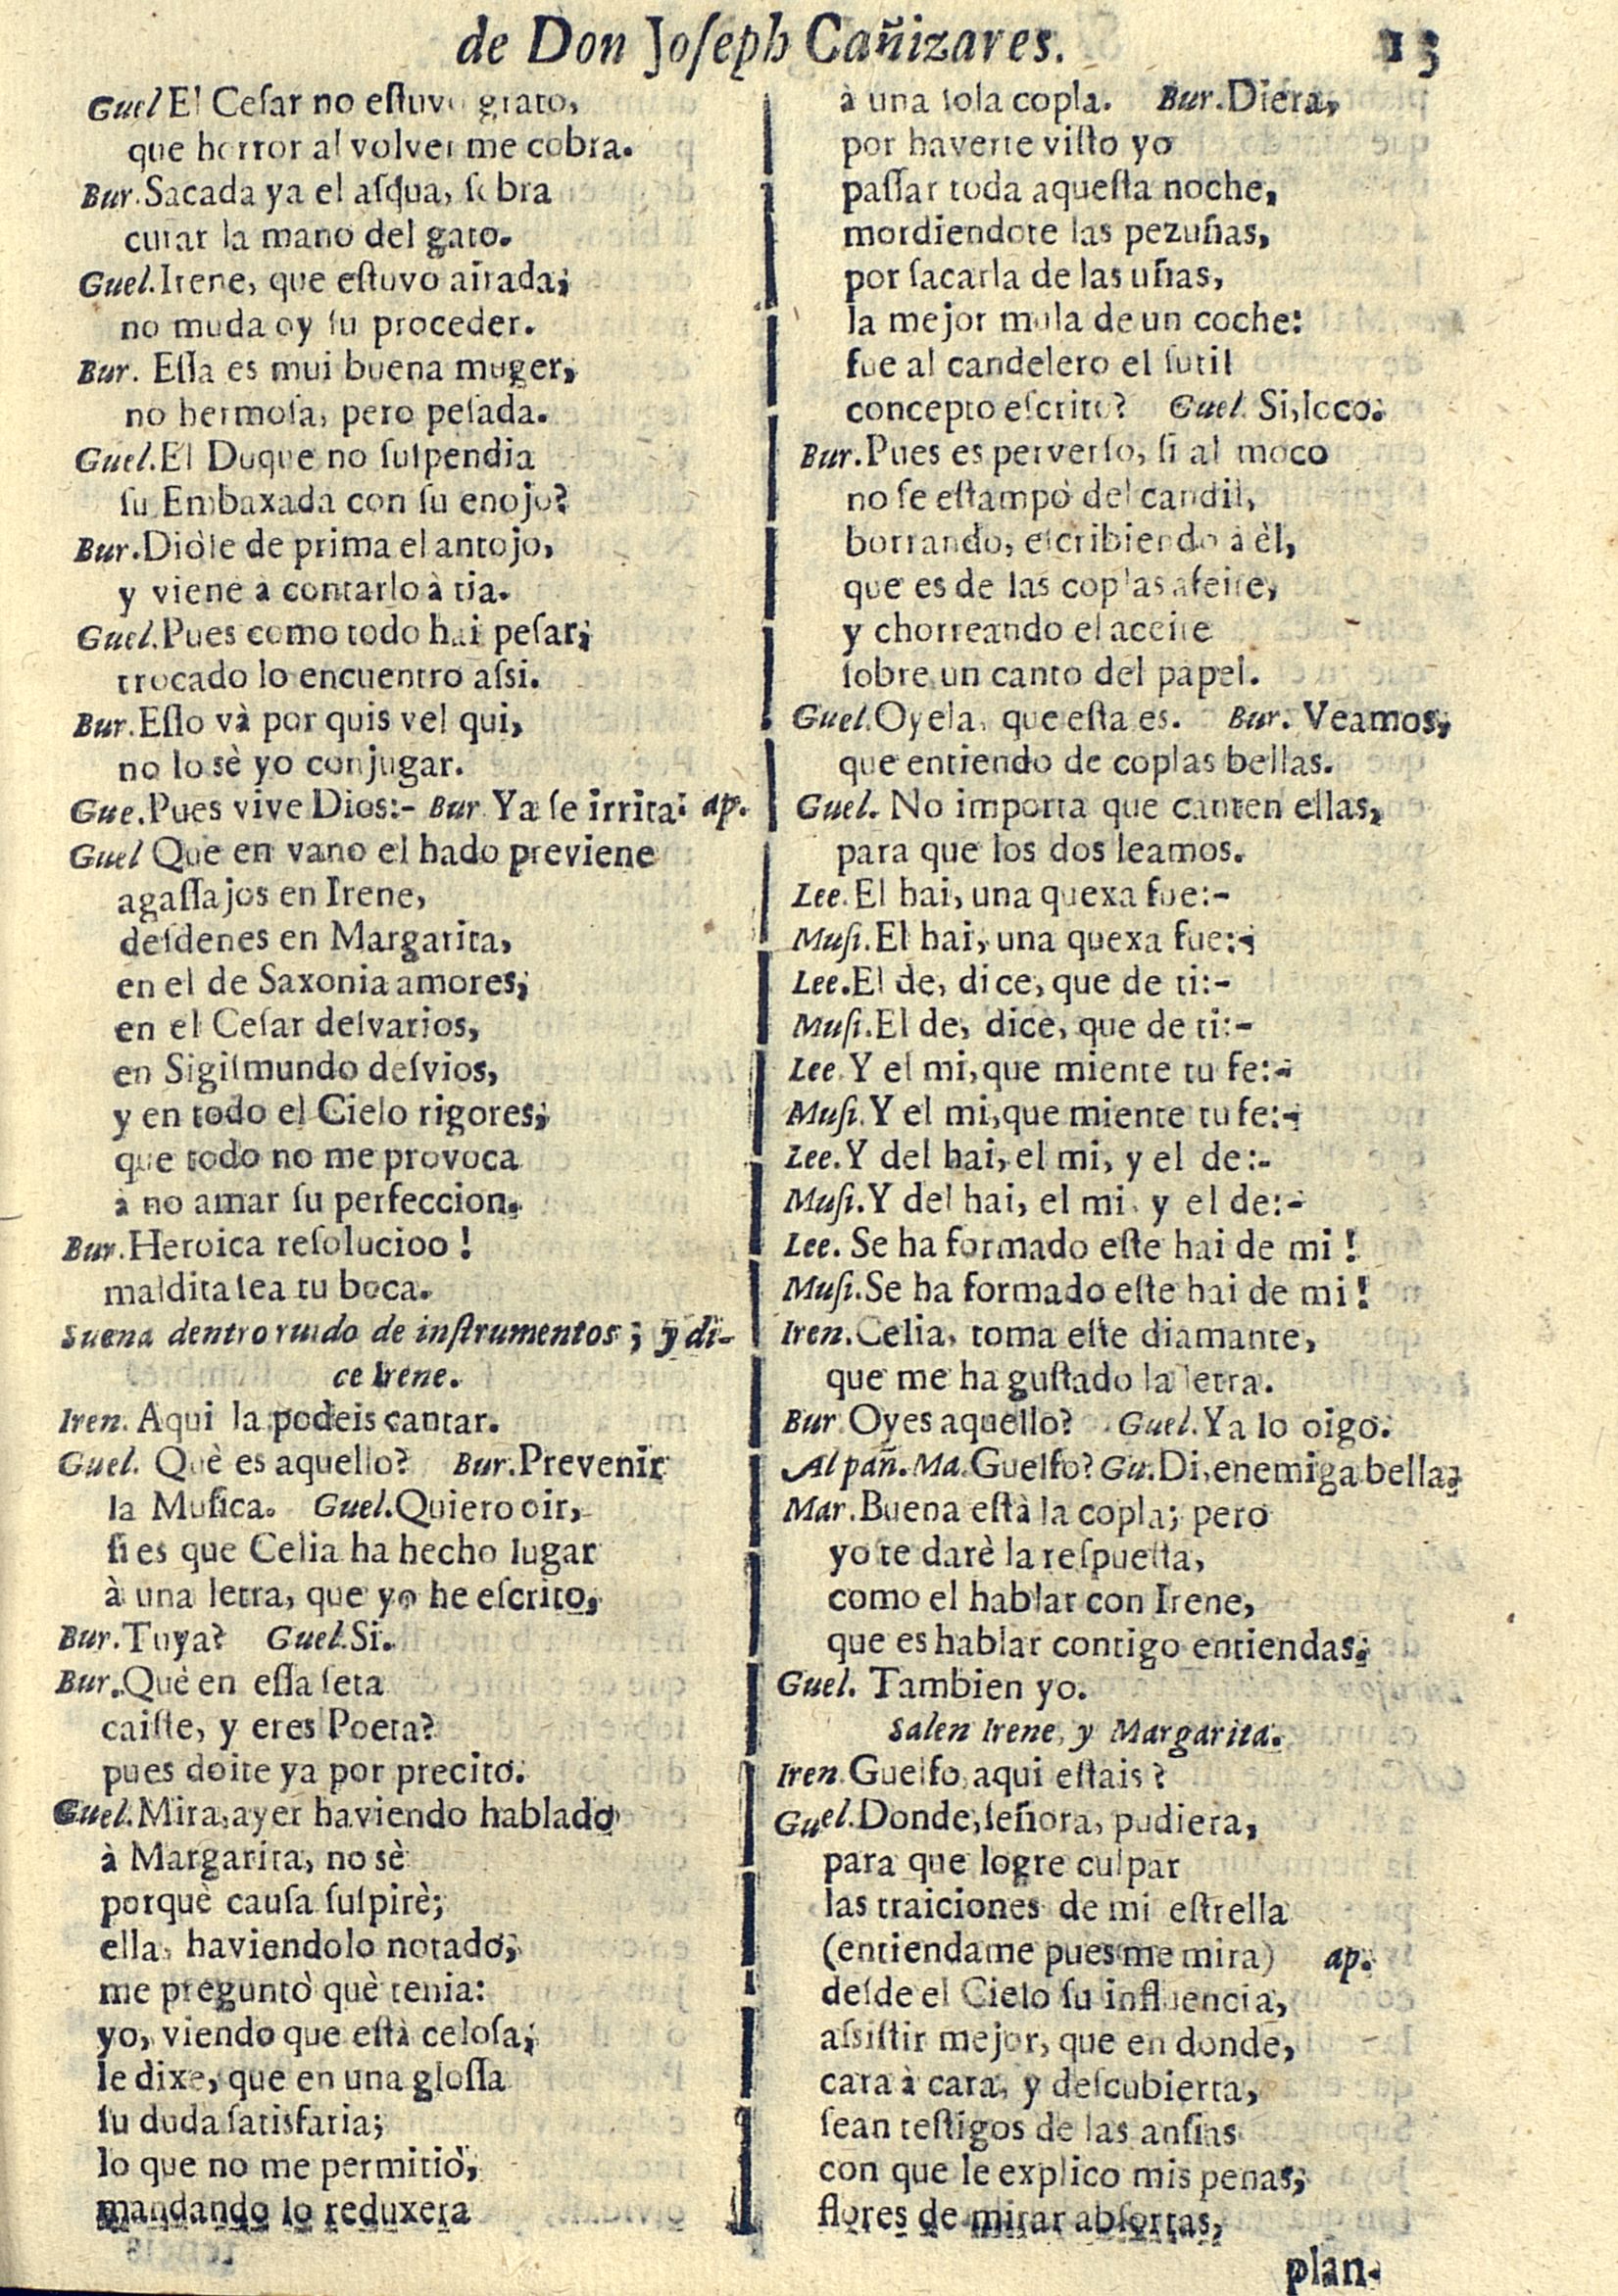 de Don Joseph Cañizares.
13
Guel El Cesar no estuvo grato,
que horror al volver me cobra.
Bur. Sacada ya el asqua, sobra
curar la mano del gato.
Guel. Irene, que estuvo airada;
no muda oy su proceder.
Bur. Essa es mui buena muger,
no hermosa, pero pesada.
Guel. El Duque no suspendia
su Embaxada con su enojo?
Bur. Diòle de prima el antojo,
y viene à contarlo à tia.
Guel. Pues como todo hai pesar;
trocado lo encuentro assi.
Bur. Esso và por quis vel qui,
no lo sè yo conjugar.
Gue. Pues vive Dios:- Bur Ya se irrita: ap.
Guel Que en vano el hado previene
agassajos en Irene,
desdenes en Margarita,
en el de Saxonia amores;
en el Cesar desvarios,
en Sigismundo desvios,
y en todo el Cielo rigores;
que todo no me provoca
à no amar su perfeccion.
Bur. Heroica resolucioo!
maldita sea tu boca.
Suena dentro ruido de instrumentos; y di-
ce Irene.
Iren. Aqui la podeis cantar.
Guel. Què es aquello? Bur. Prevenir
la Musica. Guel. Quiero oir,
si es que Celia ha hecho lugar
à una letra, que yo he escrito,
Bur. Tuya? Guel. Si.
Bur. Què en essa seta
caiste, y eres Poeta?
pues doite ya por precito.
Guel. Mira, ayer haviendo hablado
à Margarita, no sè
porquè causa suspirè;
ella, haviendolo notado,
me preguntò què tenia:
yo, viendo que està celosa;
le dixe, que en una glossa
su duda satisfaria;
lo que no me permitiò,
mandando lo reduxera
à una sola copla. Bur. Diera,
por haverte visto yo
passar toda aquesta noche,
mordiendote las pezuñas,
por sacarla de las uñas,
la mejor mula de un coche:
fue al candelero el sutil
concepto escrito? Guel. Si, loco.
Bur. Pues es perverso, si al moco
no se estampò del candil,
borrando, escribiendo à èl,
que es de las coplas afeite,
y chorreando el aceite
sobre un canto del papel.
Guel. Oyela, que esta es. Bur. Veamos,
que entiendo de coplas bellas.
Guel. No importa que canten ellas,
para que los dos leamos.
Lee. El hai, una quexa fue:-
Musi. El hai, una quexa fue:-
Lee. El de, dice, que de ti:-
Musi. El de, dice, que de ti:-
Lee. Y el mi, que miente tu fe:-
Musi. Y el mi, que miente tu fe:-
Lee. Y del hai, el mi, y el de:-
Musi. Y del hai, el mi, y el de:-
Lee. Se ha formado este hai de mi!
Musi. Se ha formado este hai de mi!
Iren. Celia, toma este diamante,
que me ha gustado la letra.
Bur Oyes aquello? Guel. Ya lo oigo.
Al pañ. Ma. Guelfo? Gu. Di, enemiga bella?
Mar. Buena està la copla; pero
yo te darè la respuesta,
como el hablar con Irene,
que es hablar contigo entiendas.
Guel. Tambien yo.
Salen Irene, y Margarita.
Iren. Guelfo, aqui estais?
Guel. Donde, señora, pudiera,
para que logre culpar
las traiciones de mi estrella
(entiendame pues me mira) ap.
desde el Cielo su influencia,
assistir mejor, que en donde,
cara à cara, y descubierta,
sean testigos de las ansias
con que le explico mis penas,
flores de mirar absortas,
plan-